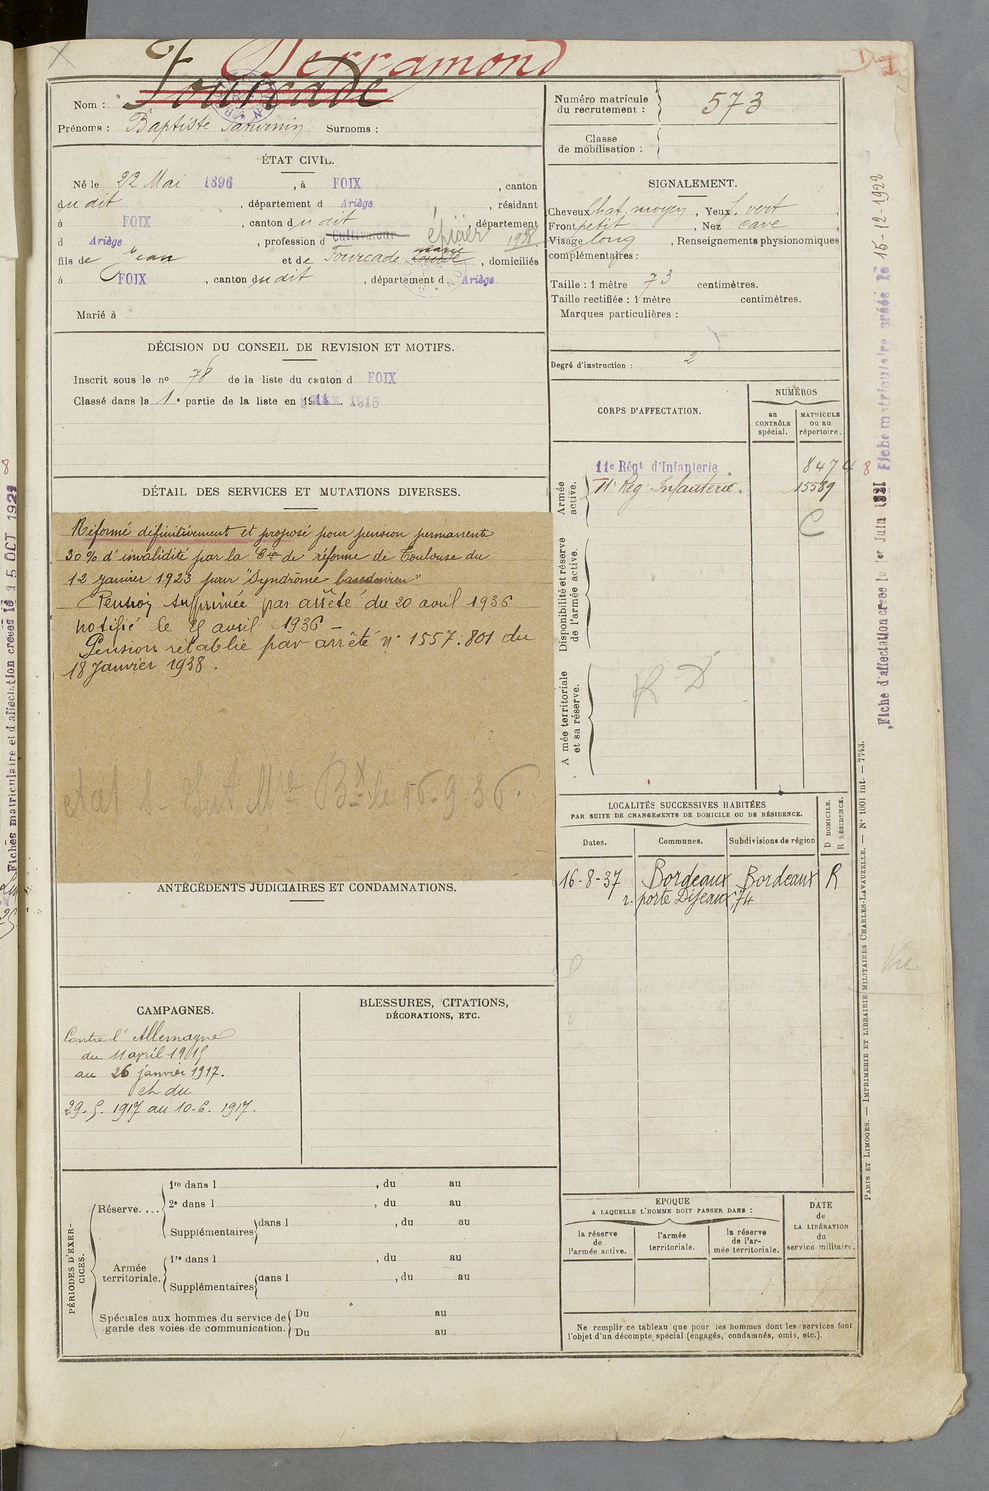 Derramond
Nom : Fourcade
Prénoms : Baptiste Saturnin Surnoms :
ÉTAT CIVIL.
Né le 22 Mai 1896, à FOIX, canton
du dit, département d Ariège, résidant
à FOIX, canton du dit, département
d Ariège, profession d Cultivateur épicier 1938
fils de Jean et de Fourcade Louise marie, domiciliés
à FOIX, canton du dit, département d Ariège
Marié à
DÉCISION DU CONSEIL DE REVISION ET MOTIFS.
Inscrit sous le no 78 de la liste du canton d FOIX
Classé dans la 1e partie de la liste en 1915
DÉTAIL DES SERVICES ET MUTATIONS DIVERSES.
Réformé définitivement et proposé pour pension permanente
30 % d'invalidité par la Cion de réforme de Toulouse du
12 janvier 1923 pour "Syndrome basedowien"
Pension supprimée par arrêté du 20 avril 1936
notifié le avril 1936 —
Pension rétablie par arrêté n° 1557.801 du
18 Janvier 1938.
ANTÉCÉDENTS JUDICIAIRES ET CONDAMNATIONS.
CAMPAGNES.
Contre l'Allemagne
du 11 avril 1915
au 26 janvier 1917.
et du
29.5.1917 au 10.6.1917.
BLESSURES, CITATIONS,
DÉCORATIONS, ETC.
PÉRIODES D'EXERCICES.
Réserve....
1re dans l , du au
2e dans l , du au
Supplémentaires dans l , du au
Armée territoriale.
1re dans l , du au
Supplémentaires dans l , du au
Spéciales aux hommes du service de
garde des voies de communication.
Du au
Du au
Numéro matricule
du recrutement : 573
Classe
de mobilisation :
SIGNALEMENT.
Cheveux Chat. moyen, Yeux vert
Front petit, Nez cave
Visage long, Renseignements physionomiques
complémentaires :
Taille : 1 mètre 73 centimètres.
Taille rectifiée : 1 mètre centimètres.
Marques particulières :
Degré d'instruction : 2
CORPS D'AFFECTATION.
NUMÉROS
au
CONTRÔLE
spécial.
MATRICULE
ou au
répertoire.
Armée active.
11e Régt d'Infanterie 8474
11e Rég Infanterie. 15589
C
Disponibilité et réserve
de l'armée active.
Armée territoriale
et sa réserve.
R D
LOCALITÉS SUCCESSIVES HABITÉES
PAR SUITE DE CHANGEMENTS DE DOMICILE OU DE RÉSIDENCE.
D DOMICILE.
R RÉSIDENCE.
Dates. Communes. Subdivisions de région
16-8-37 Bordeaux Bordeaux R
r. porte Dijeaux, 74
EPOQUE
A LAQUELLE L'HOMME DOIT PASSER DANS :
la réserve
de
l'armée active.
l'armée
territoriale.
la réserve
de l'ar-
mée territoriale.
DATE
de
LA LIBÉRATION
du
service militaire.
Ne remplir ce tableau que pour les hommes dont les services font
l'objet d'un décompte spécial (engagés, condamnés, omis, etc.).
PARIS ET LIMOGES. — IMPRIMERIE ET LIBRAIRIE MILITAIRES CHARLES-LAVAUZELLE. — N° 1001 int. — 7743.
Fiche d'affectation créée le 1er Juin 1921
Fiche matriculaire créée le 15-12-1922
Fiches matriculaire et d'affectation créées le 15 OCT 1921